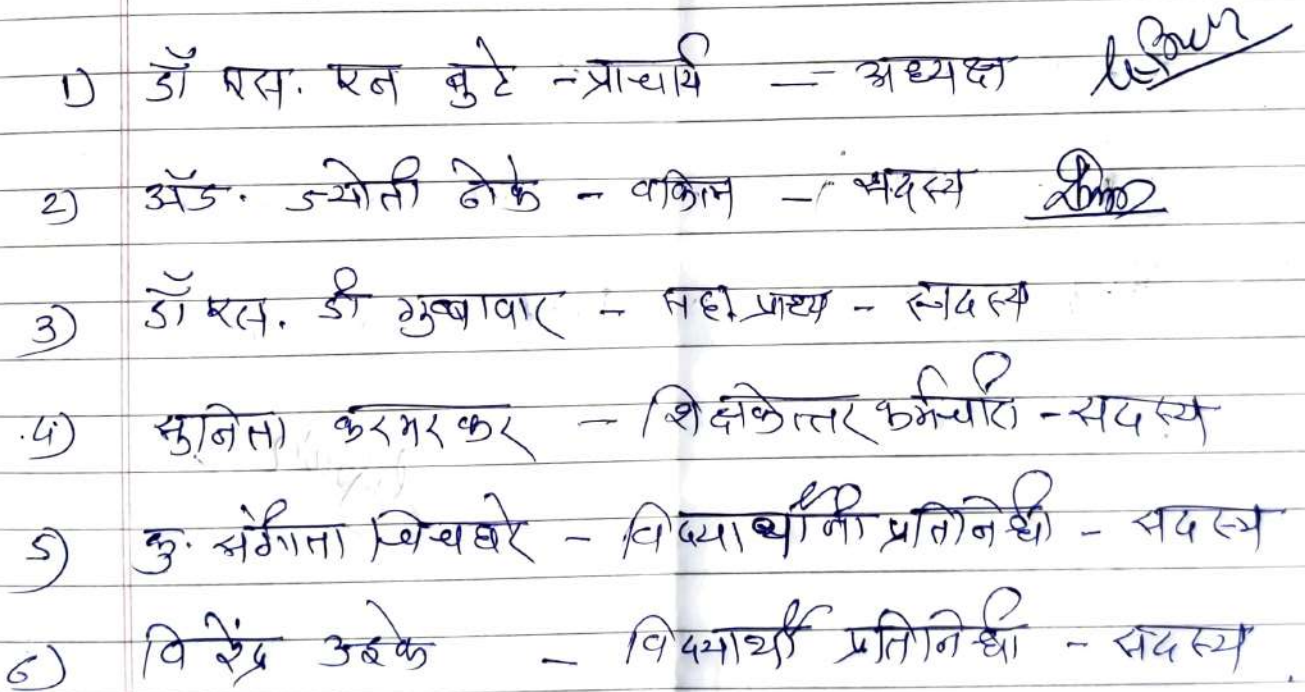 1) डॉ एस. एन बुटे - प्राचार्य - अध्यक्ष
2) अ‍ॅड. ज्योती ढोके - वकिल - सदस्य
3) डॉ एस. डी गुब्बावार - सह. प्राध्य - सदस्य
4) सुनिता करमरकर - शिक्षकेत्तर कर्मचारी - सदस्य
5) कु. संगीता चिचघरे - विद्यार्थीनी प्रतिनिधी - सदस्य
6) विरेंद्र उइके - विद्यार्थी प्रतिनिधी - सदस्य